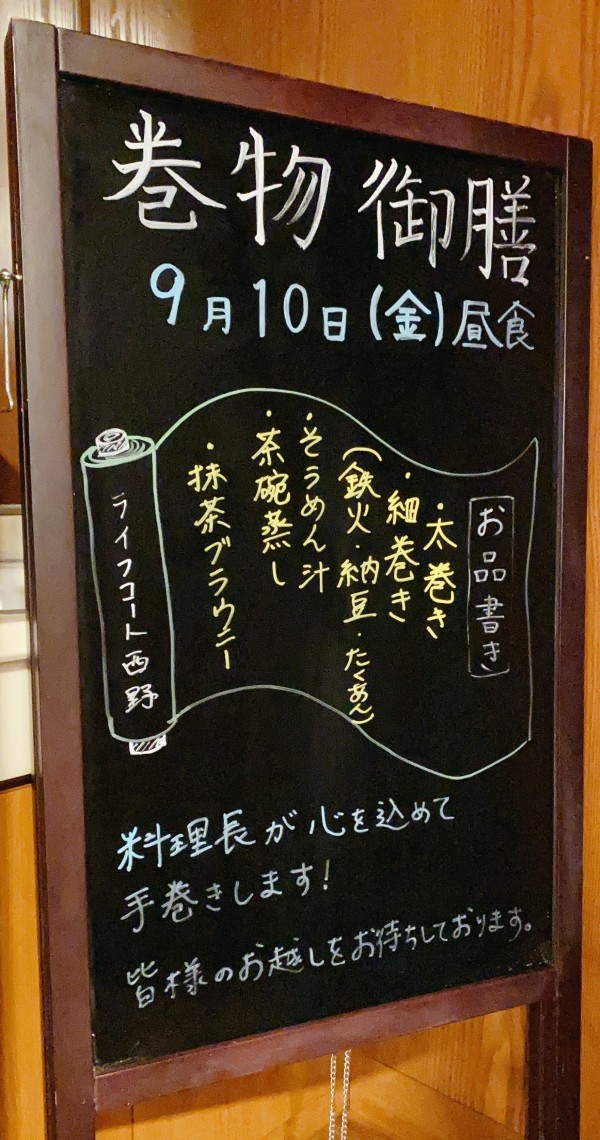 巻物御膳
9月10日(金)昼食
お品書き
・太巻き
・細巻き
(鉄火・納豆・たくあん)
・そうめん汁
・茶碗蒸し
・抹茶ブラウニー
ライフコート西野
料理長が心を込めて
手巻きします!
皆様のお越しをお待ちしております。